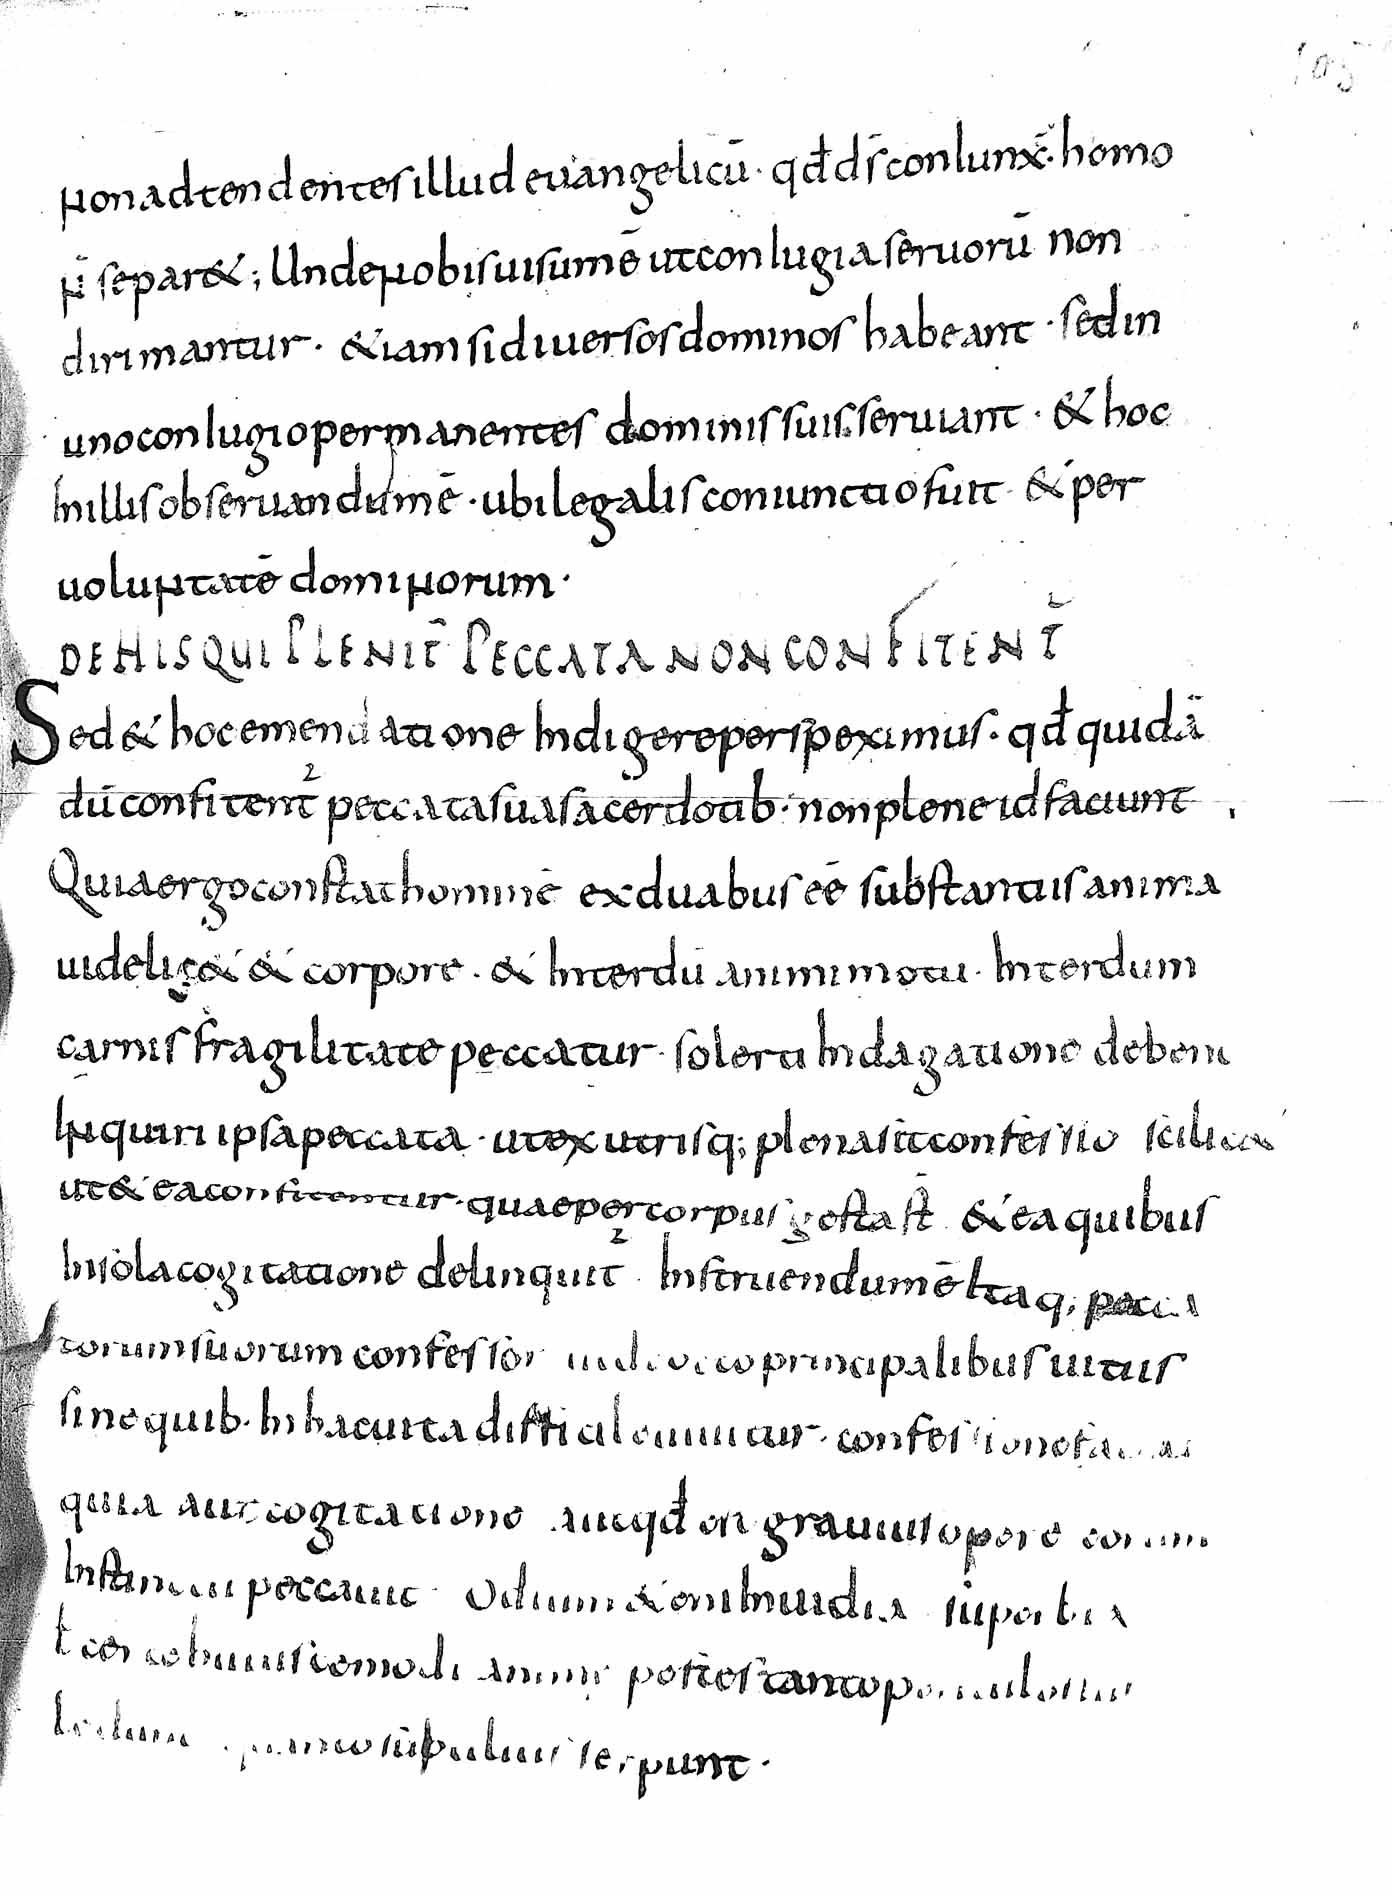 105
non adtendentes illud evangelicū · qđ ds̄ coniunx̄ · homo
n̄ separ&; Unde nobis uisum ē ut coniugia seruorū non
dirimantur · &iam si diuersos dominos habeant · sed in
uno coniugio permanentes dominis suis seruiant · & hoc
In illis obseruandum ē · ubi legalis coniunctio fuit & per
uoluntatē dominorum ·
DE HIS QUI PLENIT̄ PECCATA NON CONFITENT̄
Sed & hoc emendatione Indigere perspeximus · qđ quidā
dū confitent̄ peccata sua sacerdotib · non plene id faciunt
Quia ergo constat hominē ex duabus eē substantiis anima
uidelic& & corpore · & Interdū animi motu · Interdum
carnis fragilitate peccatur · solerti Indagatione debent
Inquiri ipsa peccata · ut ex utrisq; plena sit confessio scilic&
ut & ea confitentur · quae per corpus gesta st̄ & ea quibus
In sola cogitatione delinquit̄ Instruendum ē Itaq; pecca
torum suorum confessor principalibus uitiis
sine quib · In hac uita difficile uiuitur · confessione
quia aut cogitatione aut qđ est grauius opere eorum
Instinctu peccauit Odium &enim Inuidia superbia
cetera huiuscemodi animę pestes tanto periculosius
ledunt quanto subtilius serpunt ·